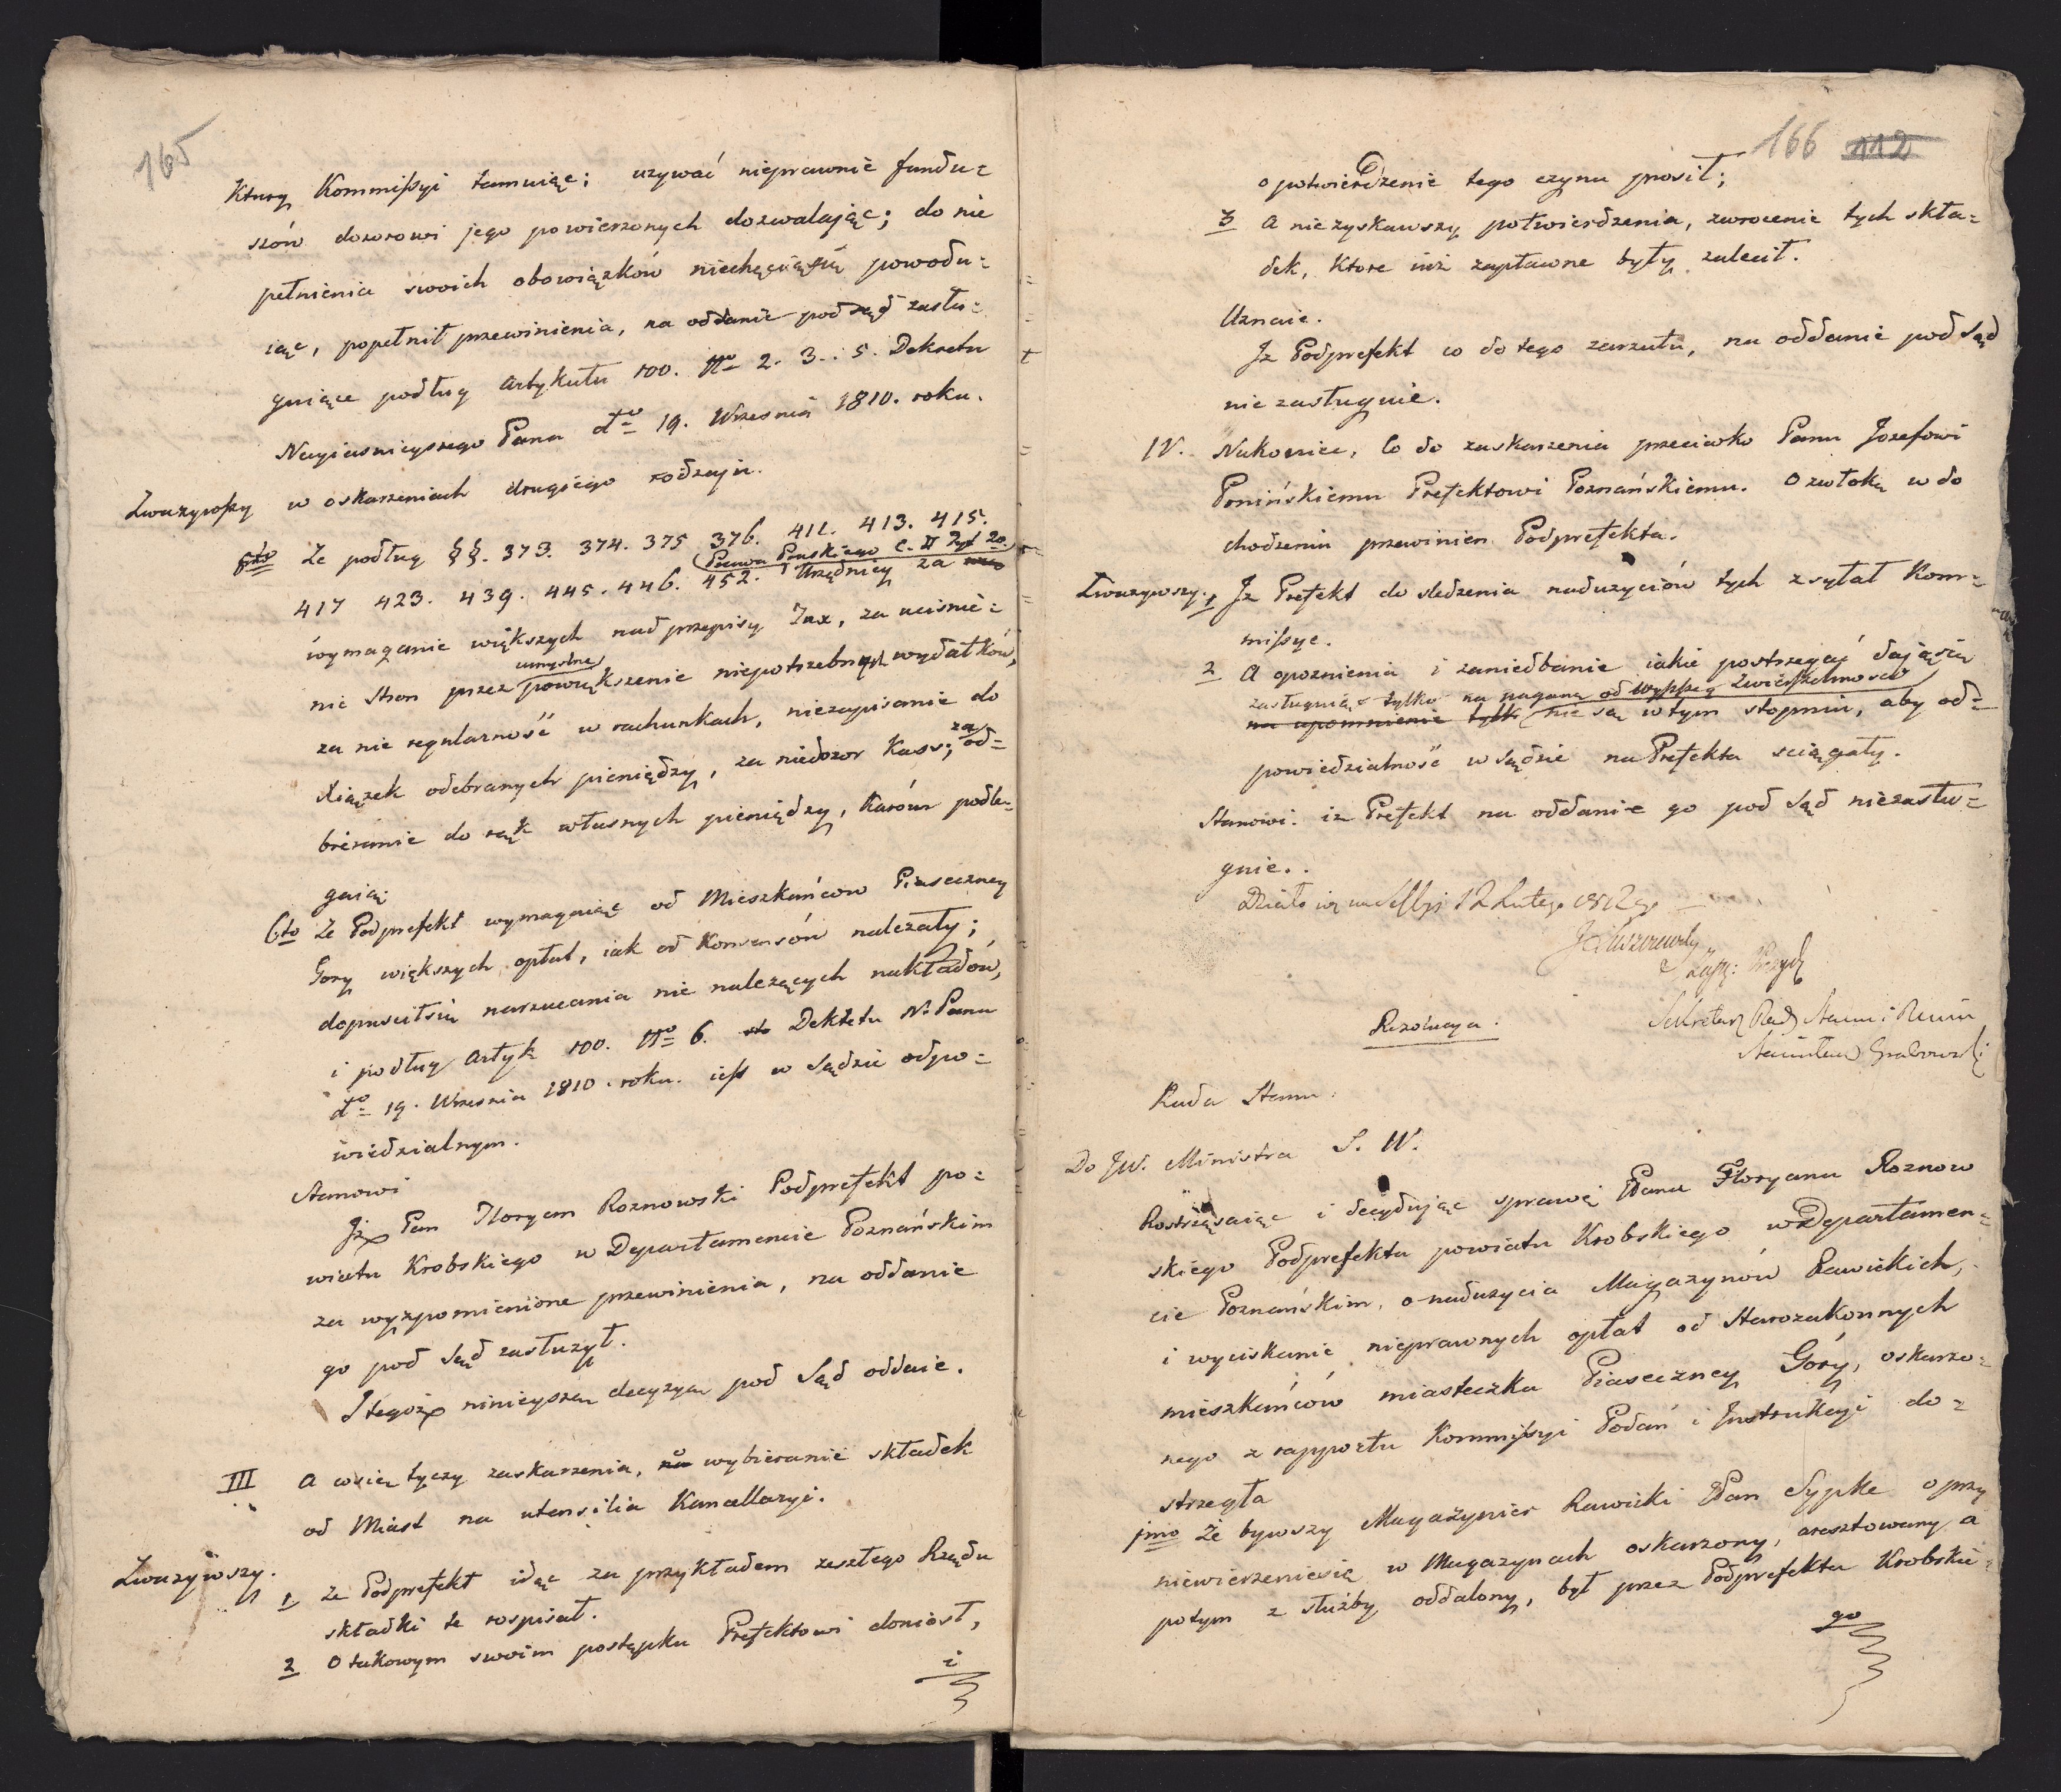 165
ktury Kommissyi tamuiąc; uzywać nieprawnie fundu=
szów dozorowi jego powierzonych dozwalając; do nie
pełnienia swoich obowiązków niechęcią się powodu=
iąc, popełnił przewinienia, na oddanie pod sąd zasłu=
guiące podług Artykułu 100. No 2. 3. . 5. Dekretu
Nayiasnieyszego Pana do 19. Wrzesnia 1810. roku.
Zwazywszy w oskarzeniach drugiego rodzaju.
5to Ze podług §§. 373. 374. 375 376. 411. 413. 415.
Prawa Pruskiego C. II Tyt 20.
417 423. 439. 445. 446. 452. Urzędnicy za
wymaganie większych nad przepisy Tax, za uciśnie=
umyslne
nie Stron przez powiększenie niepotrzebnych wydatków,
za nie regularność w rachunkach, niezapisanie do
Xiązek odebranych pieniędzy, za niedozor Kass; za od=
bieranie do rąk własnych pieniędzy, Karóm podle=
gaią
6to Ze Podprefekt wymagaiąc od Mieszkańcow Piaseczney
Gory większych opłat, iak od Konsensów nalezały;
dopuscił się narzucania nie nalezących nakładów,
i podług Artyk 100. No 6. Dekretu N. Pana
do 19. Wrzesnia 1810. roku. iest w Sądzie odpo=
wiedzialnym.
Stanowi
Jż Pan Floryan Roznowski Podprefekt po=
wiatu Krobskiego w Departamencie Poznańskim
za wyzpomienione przewinienia, na oddanie
go pod Sąd zasłuzył.
I tegoż ninieyszą decyzyą pod Sąd oddaie.
III A co się tyczy zaskarzenia, o wybieranie składek
od Miast na utensilia Kancellaryi.
Zwazywszy.
1 ze Podprefekt idąc za przykładem zeszłego Rządu
składki te rospisał.
2 O takowym swoim postępku Prefektowi doniosł,
i
166 112
o potwierdzenie tego czynu prosił;
3 A nie zyskawszy potwierdzenia, zwrocenie tych skła=
dek, Ktore iuż zapłacone były zalecił.
Uznaie.
Jz Podprefekt co do tego zarzutu, na oddanie pod Sąd
nie zasługuie.
IV. Nakoniec, Co do zaskarzenia przeciwko Panu Jozefowi
Ponińskiemu Prefektowi Poznańskiemu. O zwłokę w do
chodzeniu przewinien Podprefekta.
Zwazywszy. 1 Jz Prefekt do sledzenia naduzyciów tych zsyłał Kom=
missye.
2 A opoznienia i zaniedbanie iakie postrzegać dają się
zasługuiąc tylko na naganę od Wyzszey Zwierzchnosci
na upomnienie tylk nie są w tym stopniu, aby od=
powiedzialność w Sądzie na Prefekta sciągały.
Stanowi. iz Prefekt na oddanie go pod Sąd niezasłu=
guie..
Działo się na Sessyi 12 Lutego 1812 go
J Łuszczewski
Zastę: Prezyd
Rezolucya.
Sekretarz Rady Stanu i Minis
Stanisław Grabowski
Rada Stanu.
Do JW. Ministra S. W.
Rostrząsaiąc i decydując sprawę Pana Floryana Roznow
skiego Podprefekta powiatu Krobskiego w Departamen=
cie Poznańskim, o naduzycia Magazynów Rawickich,
i wyciskanie nieprawnych opłat od Starozakonnych
mieszkańców miasteczka Piaseczney Góry, oskarzo=
nego z rapportu Kommissyi Podań i Instrukcyi do=
strzegła
1mo Ze bywszy Magazynier Rawicki Pan Sypke o prze
niewierzenie się w Magazynach oskarzony, aresztowany a
potym z słuzby oddalony, był przez Podprefekta Krobskie=
go